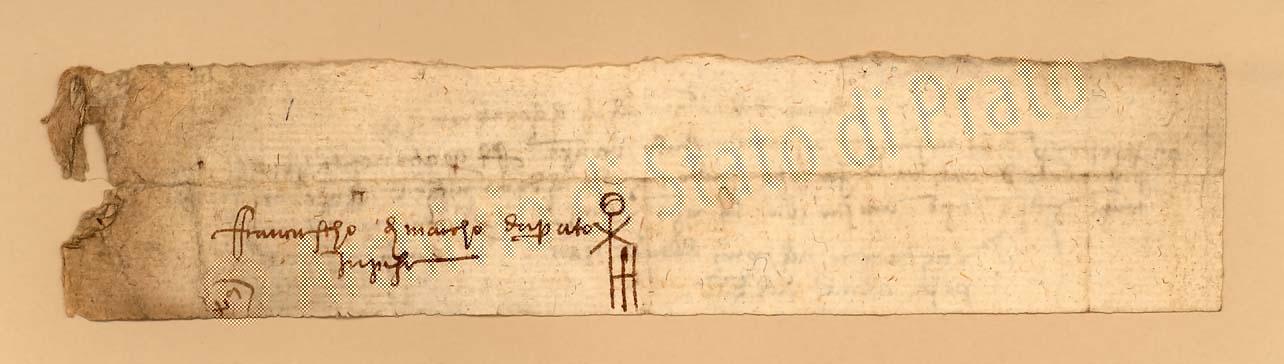 Franciescho di Marcho da Prato
in Pisa
Archivio di Stato di Prato